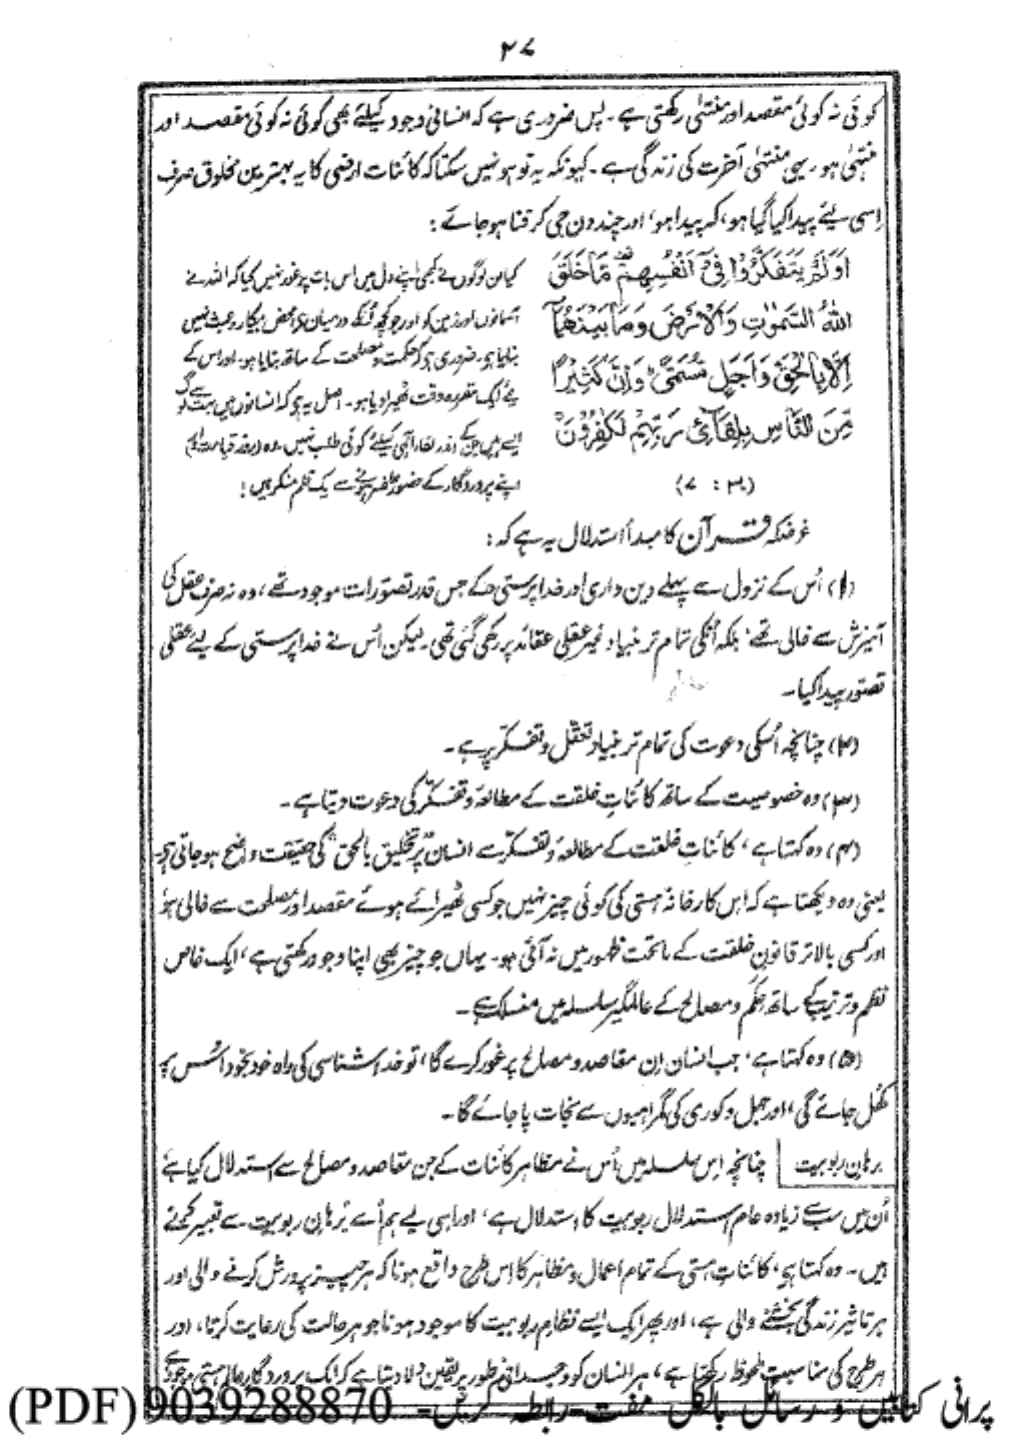 ۲۷
کوئی نہ کوئی مقصد اور منتہٰی رکھتی ہے۔ پس ضروری ہے کہ انسانی وجود کیلئے بھی کوئی نہ کوئی مقصد اور
منتہٰی ہو۔ یہی منتہٰی آخرت کی زندگی ہے۔ کیونکہ یہ تو ہو نہیں سکتا کہ کائنات ارضی کا یہ بہترین مخلوق صرف
اِسی لیے پیدا کیا گیا ہو، کہ پیدا ہو، اور چند دن جی کر فنا ہو جائے :
اَوَلَمْ يَتَفَكَّرُوْا فِيْٓ اَنْفُسِهِمْ ۣ مَا خَلَقَ
اللّٰهُ السَّمٰوٰتِ وَالْاَرْضَ وَمَا بَيْنَهُمَآ
اِلَّا بِالْحَقِّ وَاَجَلٍ مُّسَمًّى ۭ وَاِنَّ كَثِيْرًا
مِّنَ النَّاسِ بِلِقَآئِ رَبِّهِمْ لَكٰفِرُوْنَ
(۳۰ : ۷)
کیا ان لوگوں نے کبھی اپنے دل میں اس بات پر غور نہیں کیا کہ اللہ نے
آسمانوں اور زمین کو اور جو کچھ اُنکے درمیان ہے محض بیکار و عبث نہیں
بنایا ہو۔ ضروری ہو کہ حکمت و مصلحت کے ساتھ بنایا ہو۔ اور اس کے
لیے ایک مقررہ وقت ٹھیرا دیا ہو۔ اصل یہ ہو کہ انسانوں میں بہت سے لوگ
ایسے ہیں جن کے اندر لقاء الٰہی کیلئے کوئی طلب نہیں۔ وہ (روز قیامت کو)
اپنے پروردگار کے حضور حاضر ہونے سے یک قلم منکر ہیں !
غرضکہ قرآن کا مبدأ استدلال یہ ہے کہ :
(۱) اُس کے نزول سے پہلے دین داری اور خدا پرستی کے جس قدر تصوّرات موجود تھے، وہ نہ صرف عقل کی
آمیزش سے خالی تھے، بلکہ اُنکی تمام تر بنیاد غیر عقلی عقائد پر رکھی گئی تھی۔ لیکن اُس نے خدا پرستی کے لیے عقلی
تصوّر پیدا کیا۔
(۲) چنانچہ اُسکی دعوت کی تمام تر بنیاد تعقّل و تفکّر پر ہے۔
(۳) وہ خصوصیت کے ساتھ کائناتِ خلقت کے مطالعہ و تفکّر کی دعوت دیتا ہے۔
(۴) وہ کہتا ہے، کائناتِ خلقت کے مطالعہ و تفکّر سے انسان پر "تخلیق بالحق" کی حقیقت واضح ہو جاتی ہے
یعنی وہ دیکھتا ہے کہ اِس کارخانۂ ہستی کی کوئی چیز نہیں جو کسی ٹھیرائے ہوئے مقصد اور مصلحت سے خالی ہو
اور کسی بالاتر قانونِ خلقت کے ماتحت ظہور میں نہ آئی ہو۔ یہاں جو چیز بھی اپنا وجود رکھتی ہے، ایک خاص
نظم و ترتیب کے ساتھ حِکَم و مصالح کے عالمگیر سلسلہ میں منسلک ہے۔
(۵) وہ کہتا ہے، جب انسان اِن مقاصد و مصالح پر غور کرے گا، تو خدا شناسی کی راہ خود بخود اُس پر
کُھل جائے گی، اور جہل و کوری کی گمراہیوں سے نجات پا جائے گا۔
برہان ربوبیت | چنانچہ اِس سلسلہ میں اُس نے مظاہر کائنات کے جن مقاصد و مصالح سے استدلال کیا ہے
اُن میں سب سے زیادہ عام استدلال ربوبیت کا استدلال ہے، اور اسی لیے ہم اُسے بُرہان ربوبیت سے تعبیر کرتے
ہیں۔ وہ کہتا ہے، کائنات ہستی کے تمام اعمال و مظاہر کا اِس طرح واقع ہونا کہ ہر چیز پرورش کرنے والی اور
ہر تاثیر زندگی بخشنے والی ہے، اور پھر ایک ایسے نظامِ ربوبیت کا موجود ہونا جو ہر حالت کی رعایت کرتا، اور
ہر طرح کی مناسبت ملحوظ رکھتا ہے، ہر انسان کو وجدانی طور پر یقین دلا دیتا ہے کہ ایک پروردگارِ عالم ہستی موجود ہے
پرانی کتابیں و رسائل بالکل مفت۔ رابطہ کریں۔ 9039288870 (PDF)